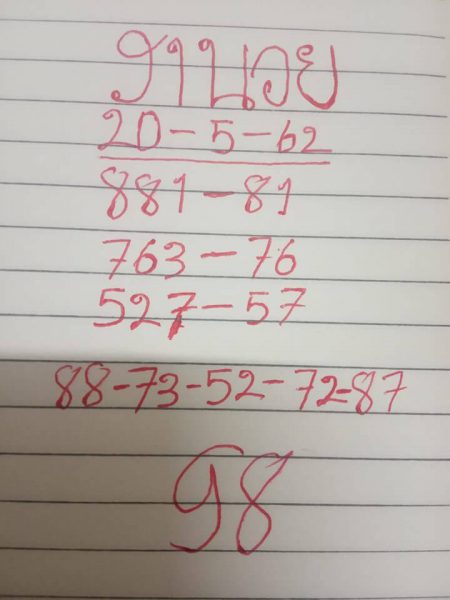 ฮานอย
20-5-62
881-81
763-76
527-57
88-73-52-72-87
98